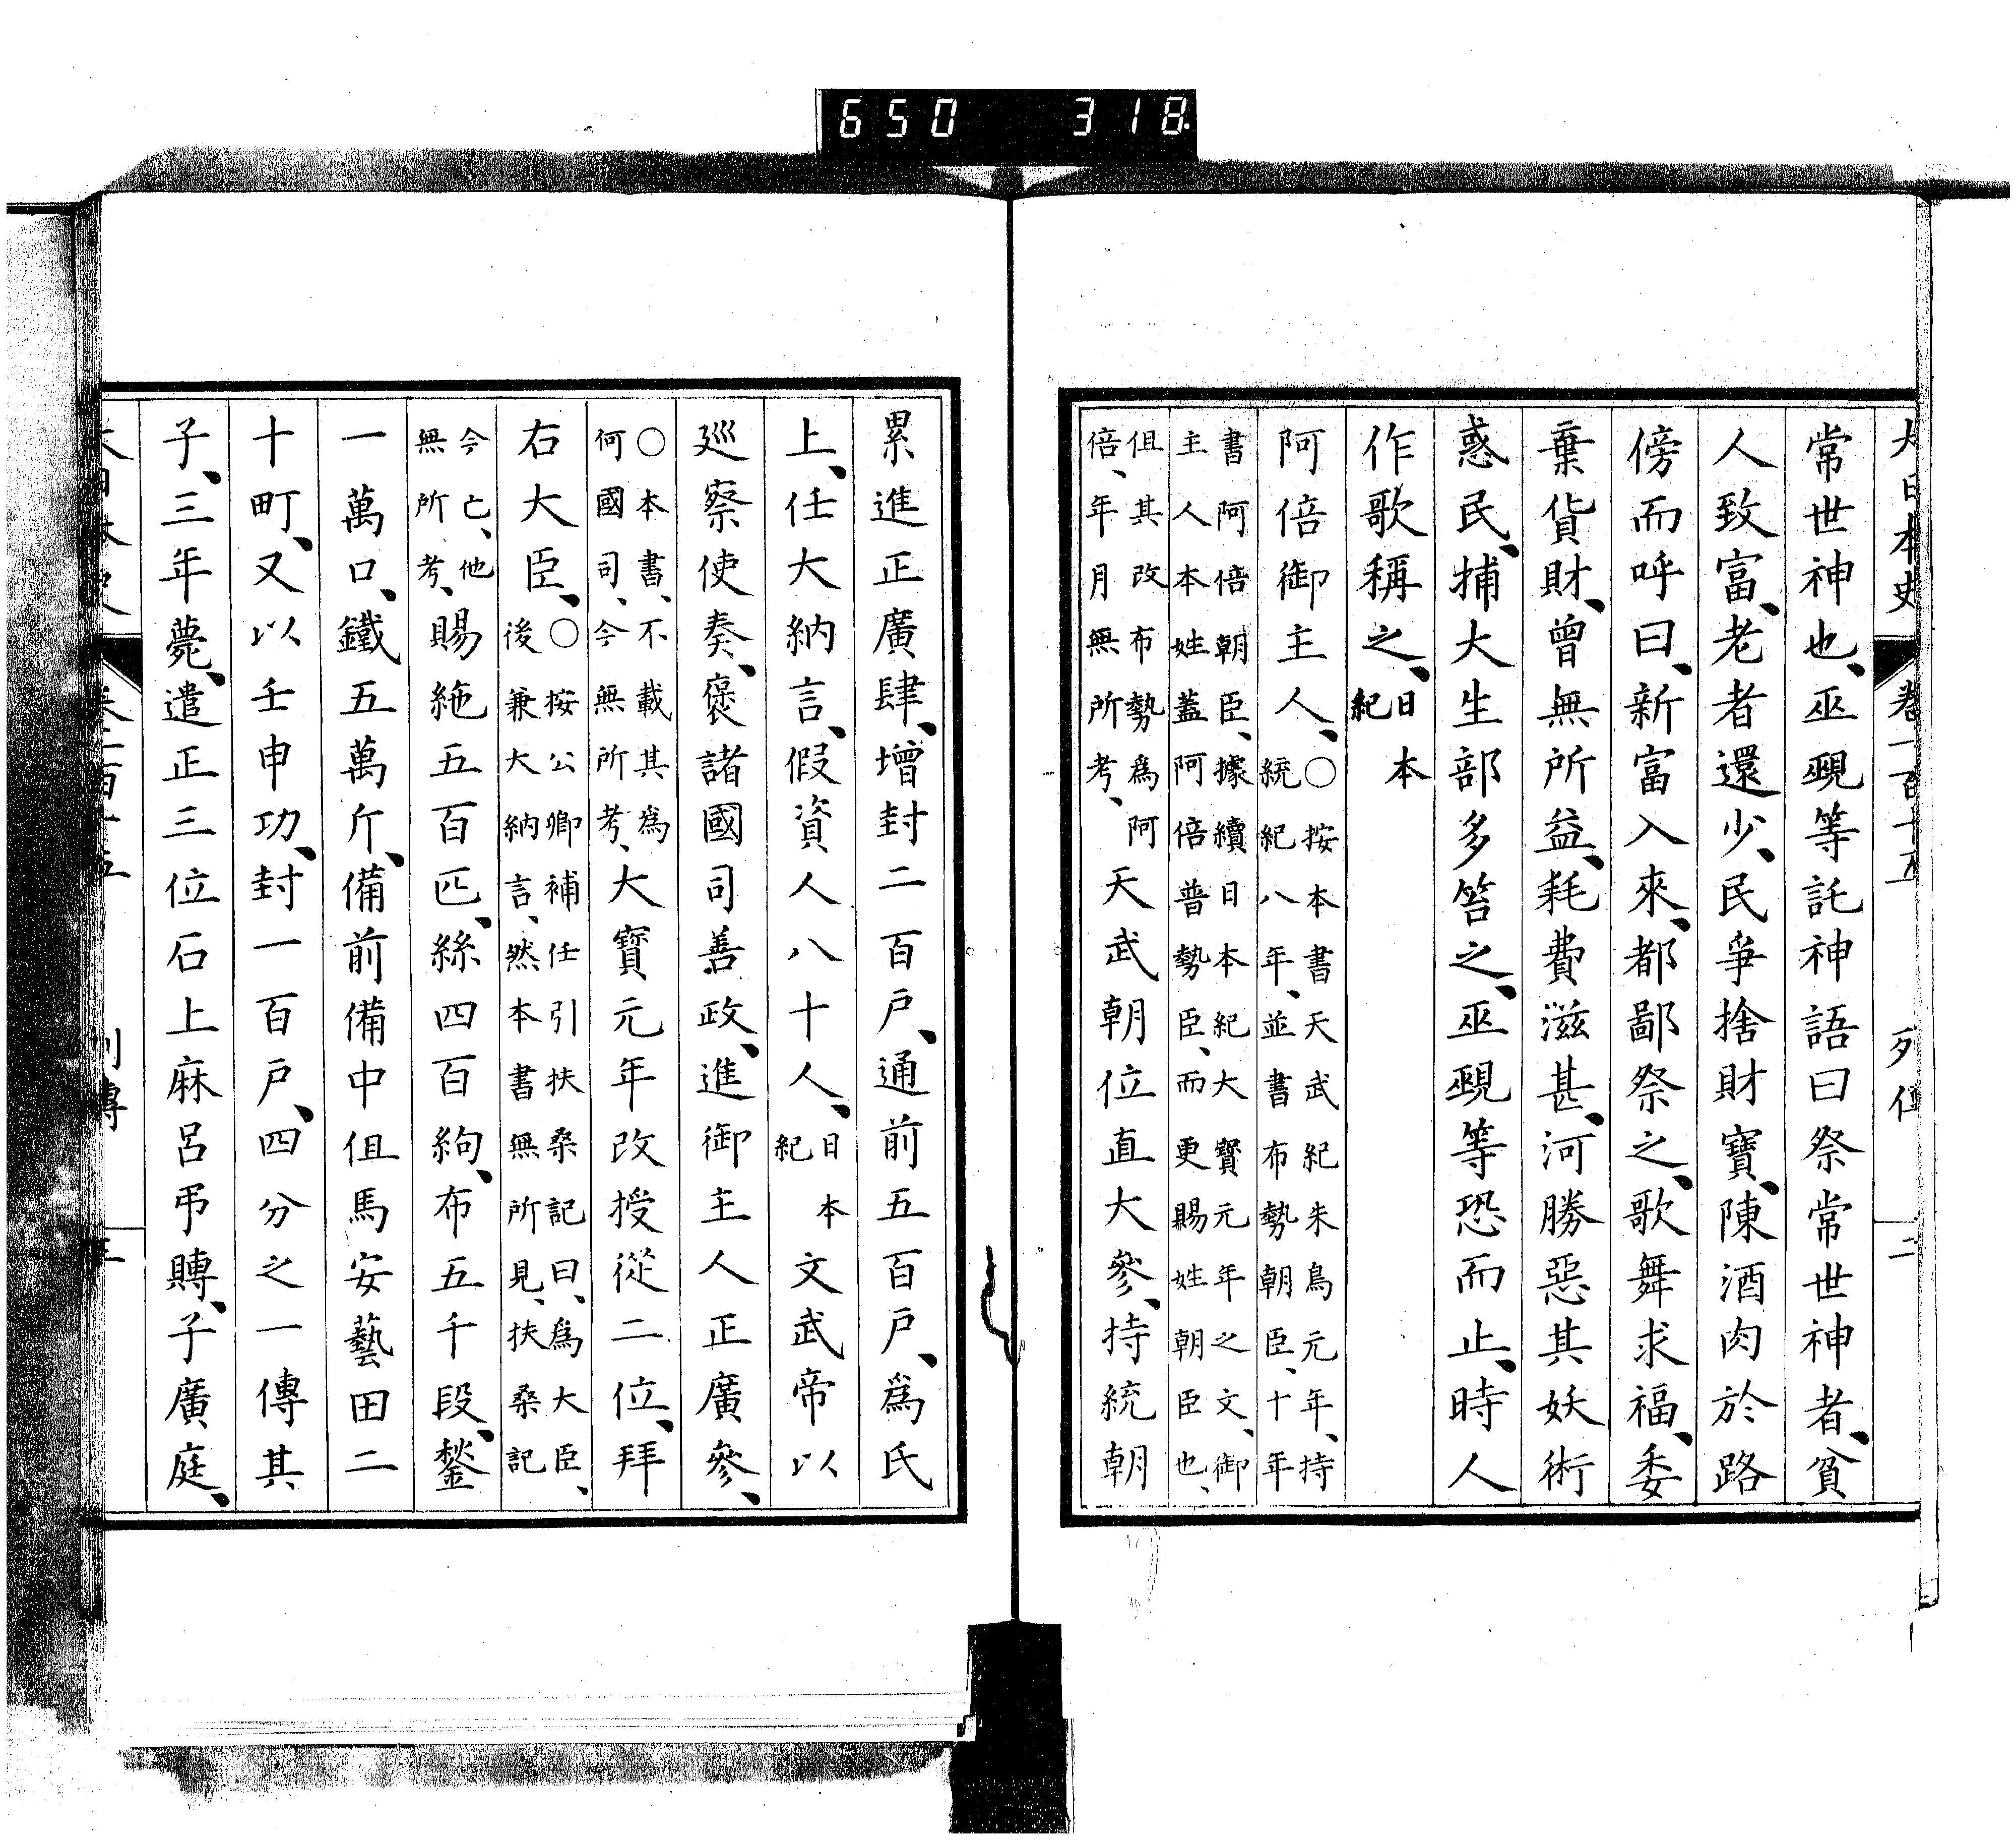 650 318
大日本史 卷一百十五 列傳 二
常世神也、巫覡等託神語曰祭常世神者、貧
人致富、老者還少、民爭捨財寶、陳酒肉於路
傍而呼曰、新富入來、都鄙祭之、歌舞求福、委
棄貨財、曾無所益、耗費滋甚、河勝惡其妖術
惑民、捕大生部多笞之、巫覡等恐而止、時人
作歌稱之、日本紀
阿倍御主人、〇按本書天武紀朱鳥元年、持
統紀八年、並書布勢朝臣、十年
書阿倍朝臣、據續日本紀大寶元年之文、御
主人本姓蓋阿倍普勢臣、而更賜姓朝臣也、
但其改布勢爲阿
倍、年月無所考、天武朝位直大參、持統朝
累進正廣肆、增封二百戶、通前五百戶、爲氏
上、任大納言、假資人八十人、日本紀文武帝以
巡察使奏、褒諸國司善政、進御主人正廣參、
〇本書、不載其爲
何國司、今無所考、大寶元年改授從二位、拜
右大臣、〇按公卿補任引扶桑記曰、爲大臣、
後兼大納言、然本書無所見、扶桑記
今亡、他
無所考、賜絁五百匹、絲四百絇、布五千段、鍫
一萬口、鐵五萬斤、備前備中但馬安藝田二
十町、又以壬申功、封一百戶、四分之一傳其
子、三年薨、遣正三位石上麻呂弔賻、子廣庭、
大日本史 卷一百十五 列傳 三